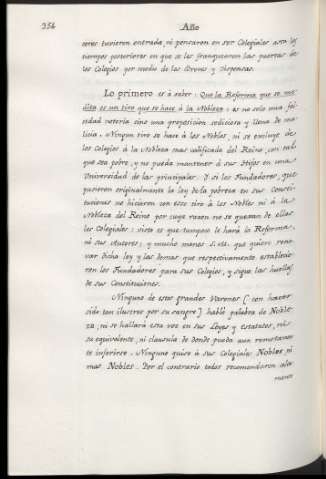 256 Año
ores tuvieron entrada, ni pensaron en ser Colegiales asta los
tiempos posteriores en que se les franquearon las puertas de
los Colegios por medio de las Becas y Dispensas.
Lo primero es á saber: Que la Reforma que se me-
dita es un tiro que se hace á la Nobleza: es no solo una fal-
sedad notoria sino una proposicion sediciosa y llena de ma-
licia. Ningun tiro se hace á los Nobles, ni se excluye de
los Colegios á la Nobleza mas calificada del Reino, con tal
que sea pobre, y no pueda mantener á sus Hijos en una
Universidad de las principales. Y si los Fundadores, que
pusieron originalmente la ley de la pobreza en sus Consti-
tuciones no hicieron con esto tiro á los Nobles ni á la
Nobleza del Reino por cuya razon no se quexan de ellas
los Colegiales: cierto es que tampoco le hará la Reforma,
ni sus Autores; y mucho menos S. M. que quiere reno-
var dicha ley y las demas que respectivamente establecie-
ron los Fundadores para sus Colegios, y sigue las huellas
de sus Constituciones.
Ninguno de estos grandes Varones (con haver
sido tan ilustres por su sangre) habló palabra de Noble-
za, ni se hallará esta voz en sus Leyes y estatutos, ni
su equivalente, ni clausula de donde pueda aun remotamen-
te inferirse. Ninguno quiso á sus Colegiales Nobles, ni
mas Nobles. Por el contrario todos recomendaron alta-
mente